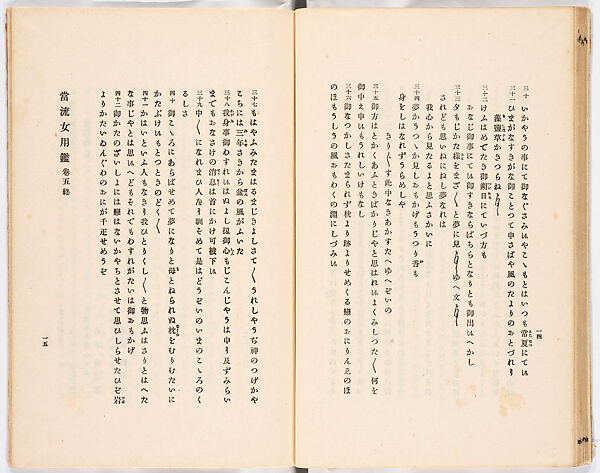 三十 いかやうの事にて御なぐさみいやこゝもとはいつも常夏にてい
三十一 ひまがなすきがな御ことつて申さばや風のたよりのおとづれり
藻鹽草かきつらね
三十二 けふはめでたき御朔日にていづ方も
おなじ御事にてい御すきならばちとなりとも御出いへかし
三十三 夕もじかた様をまざ〱と夢に見ゆへ文
されども思いねにねし夢なれは
我心から見たるよと思ふさかいに
三十四 夢かうつゝか見しおもかげもうつり香も
身をしはなれずうらめしや
きり〱す此中なきあかすたへゆへぞいの
三十五 御方はとかくあふときばかりじやと思はれいよくみしつた〱何を
御申え申いもうれしいけもなし
三十六 御なつかしさたまられず枕より跡よりせめくる戀のおにりんゑのほ
のほもうしの風おもわくの淵にしづみい
一四
三十七 もはやふみたまはるまじきよしさて〱うれしやうぢ神のつげかや
こちには三年さきから鹽の風がふいた
三十八 我身事御わすれいはぬよし扨御心もじこんじやうは申り及ずみらい
までもおなさけの消息は首にかけ可被下い
三十九 中〱になれまひ人馴り訓そめて是はどうぞいのいまのこゝろのく
るしさ
四十 御こゝろにあらばせめて夢になりと母とねられぬ枕をむりむたいに
かたぶけいもとつときのどく〱
四十一 かはいといふ人もなきり我ひとりくし〱と物思ふはさりとはへた
な事じやとは思いへどもそれでもわすれがたいは御おもかげ
四十二 御かたのざいしよには戀はないかやちとさせて思ひしらせたひぞ岩
よりかたいゐんぐわのおにが千疋せめうぞ
當流女用鑑 卷五終
一五